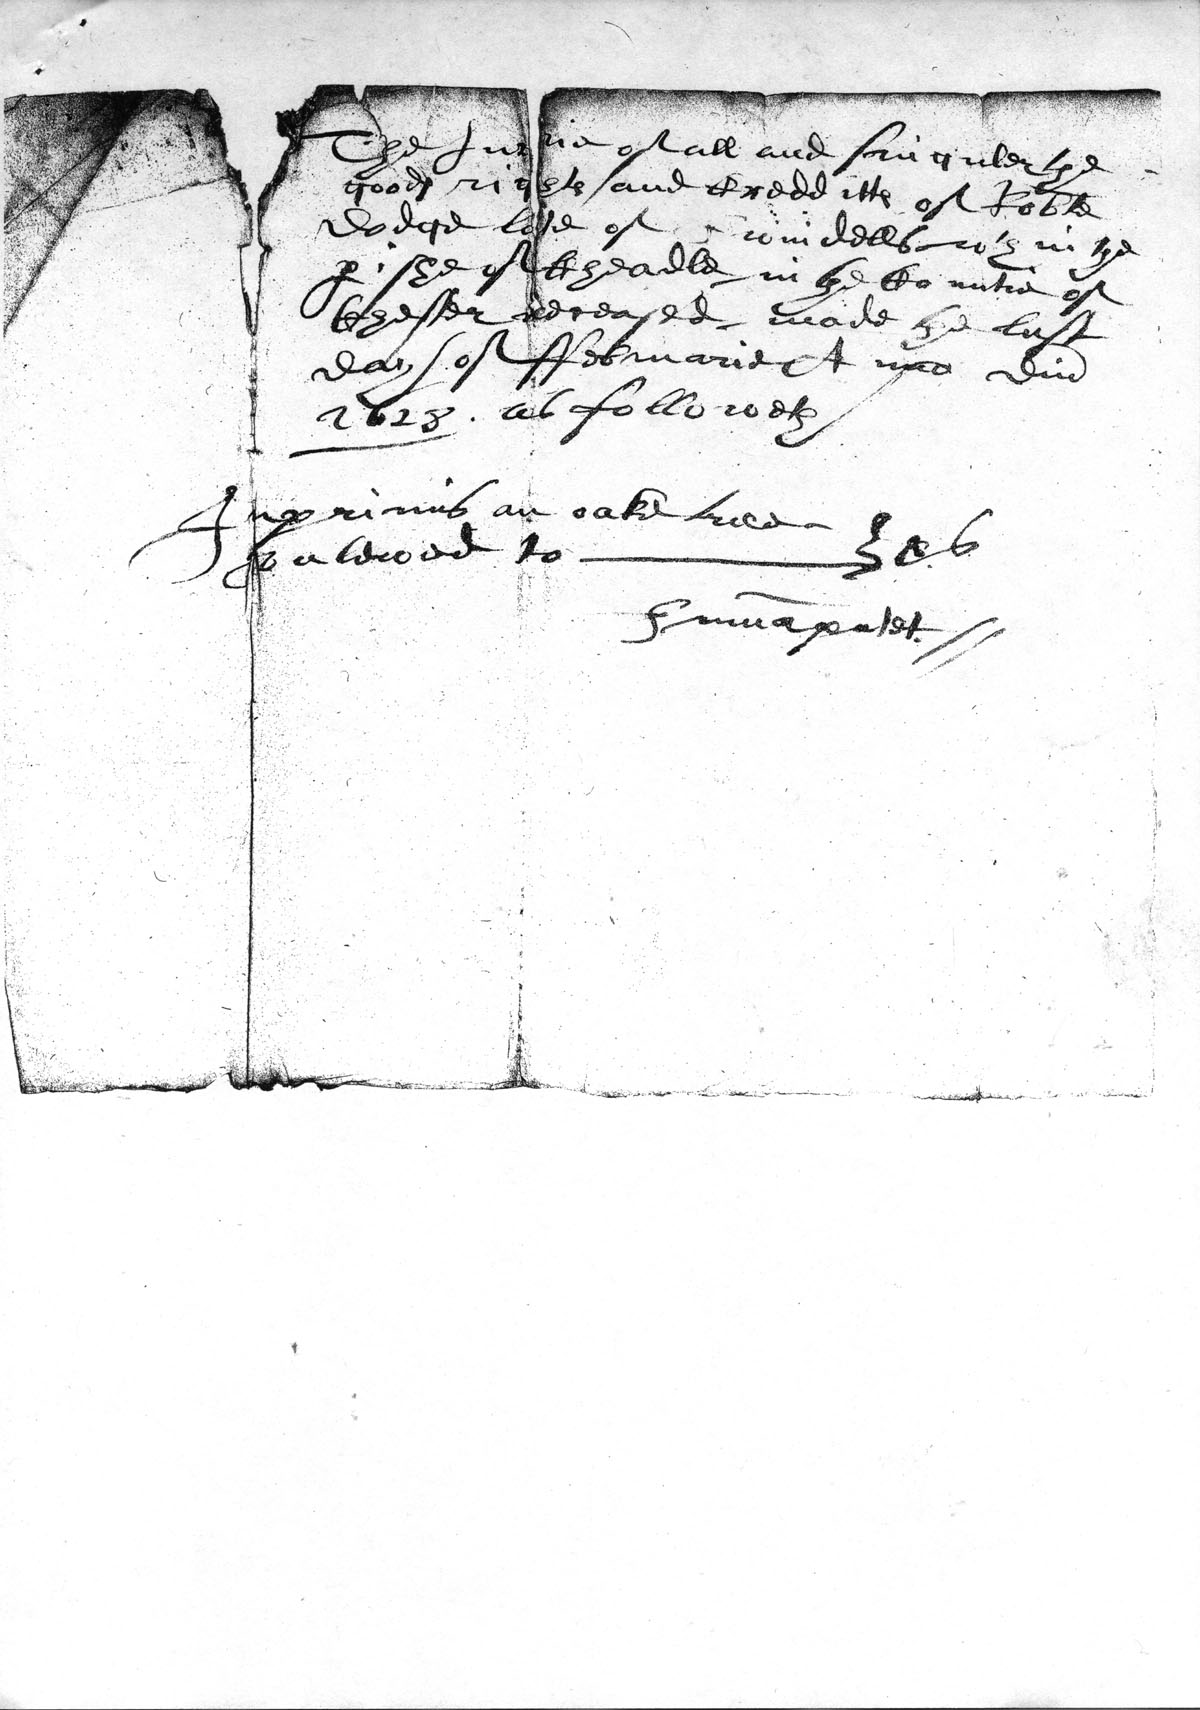 The Inv rie of all and singuler the
goods rights and Credditts of Robte
Dodge late of within the
p'ishe of Cheadle in the Countie of
Chester deceased made the last
day of ffebruarie Anno Dni
1623. as followeth
Inprimis an oake tree
valewed to
Summa patet. //